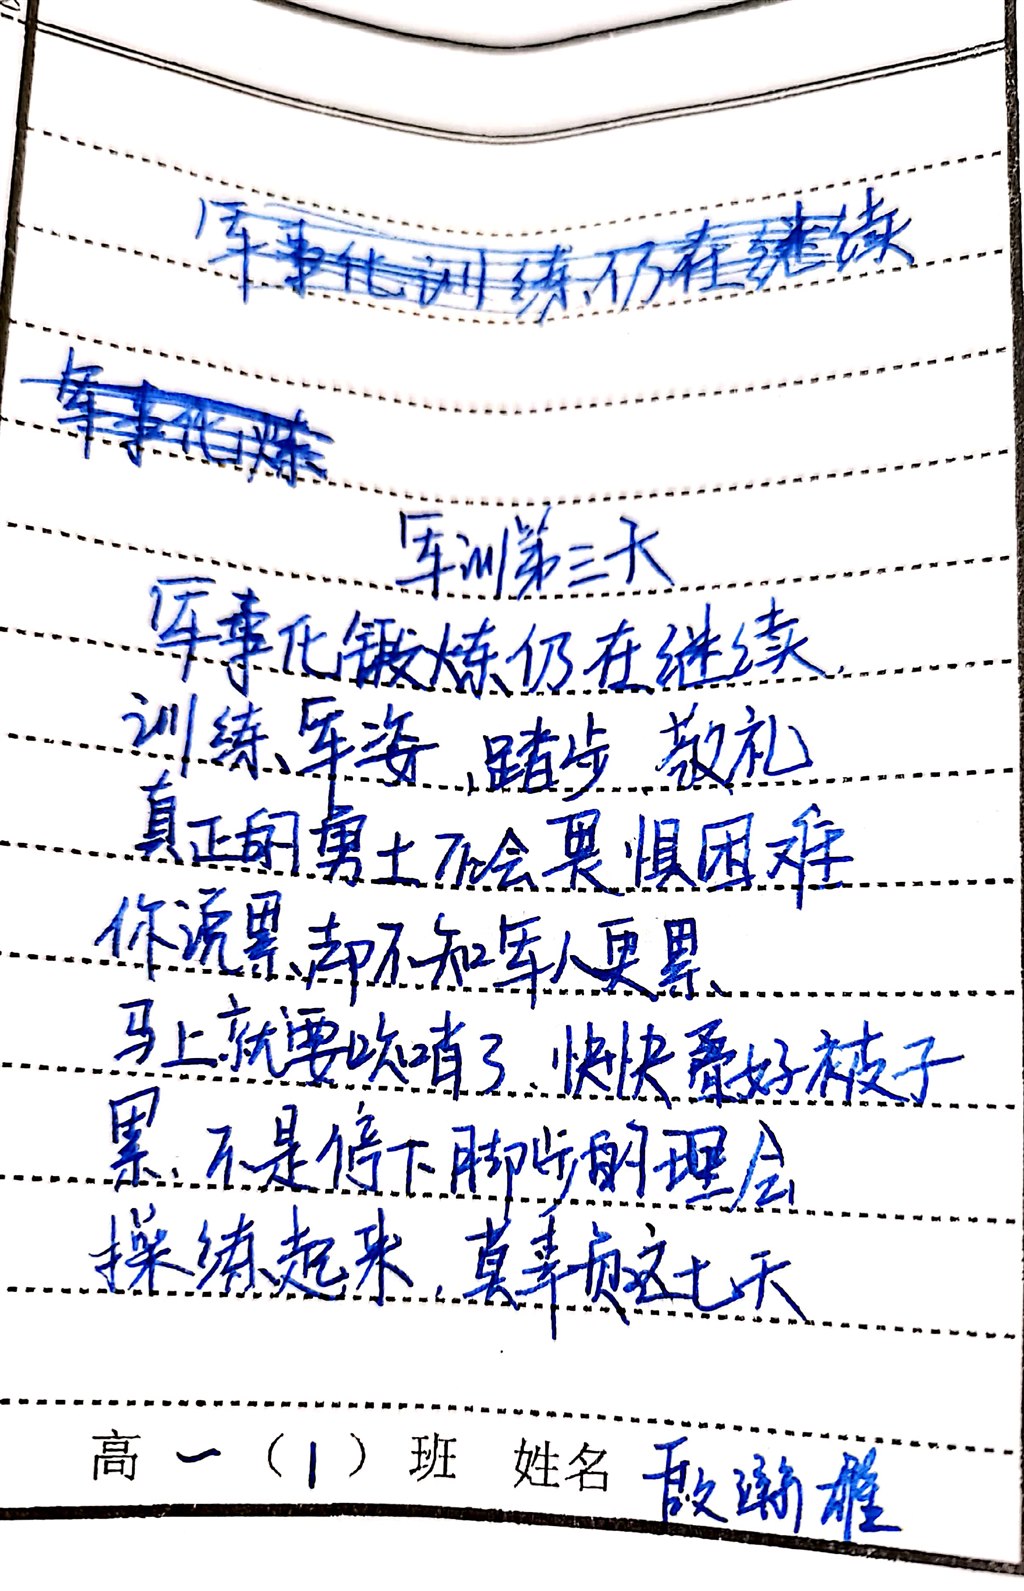 军事化训练仍在继续
军事化炼
军训第三天
军事化锻炼仍在继续,
训练、军姿、踏步、敬礼
真正的勇士不会畏惧困难
你说累、却不知军人更累、
马上就要吹哨了、快快叠好被子
累、不是停下脚步的理会
操练起来,莫辜负这七天
高一(1)班 姓名